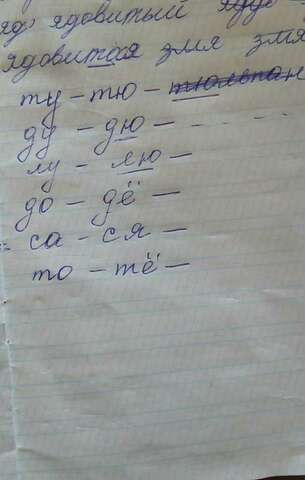 яд, ядовитый
ядовитая змя змя
ту - тю - тюльпан
ду - дю - - - - -
лу - лю -
до - дё -
са - ся -
то - тё -